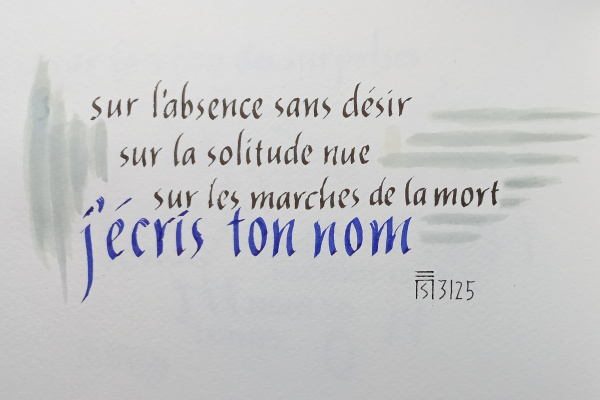 sur l'absence sans désir
sur la solitude nue
sur les marches de la mort
j'écris ton nom
S 3125